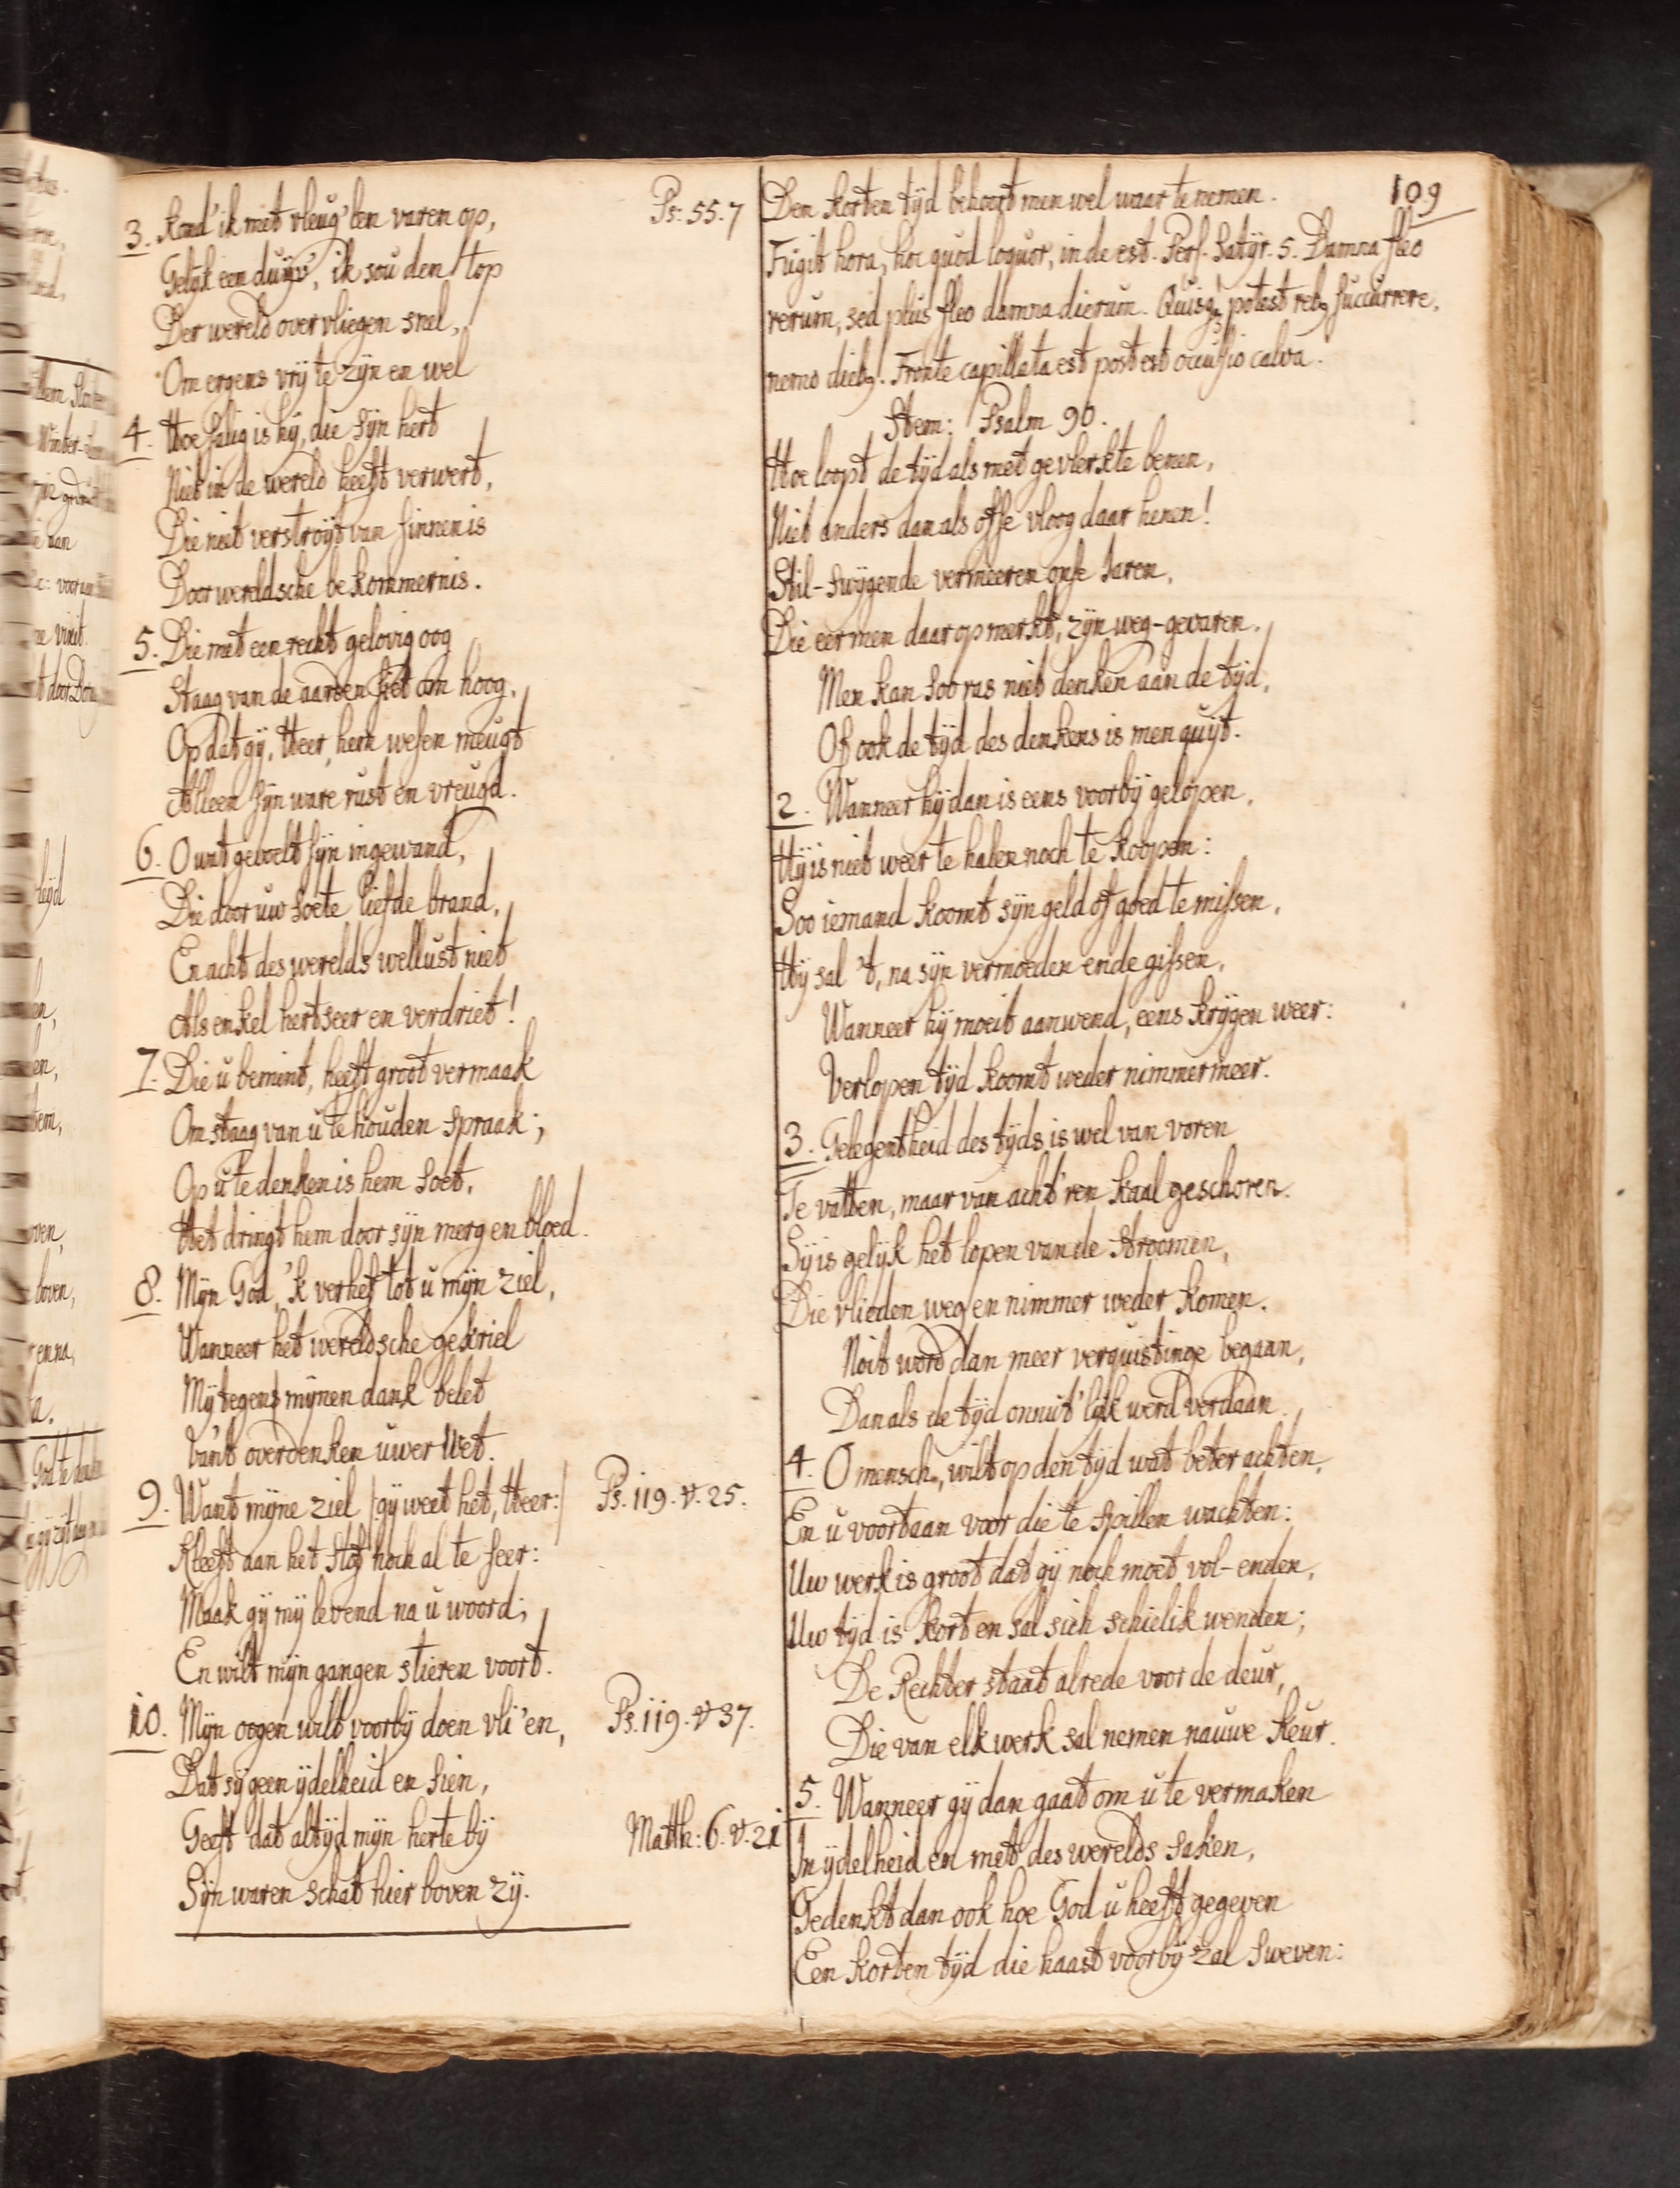 3. Kond' ik met vleug'len varen op, Ps: 55.7
Gelijk een duijv', ik sou den top
Der wereld overvliegen snel,
Om ergens vrij te zijn en wel
4. Hoe salig is hij, die sijn hert
Niet in de wereld heeft verwert,
Die niet verstroijt van sinnen is
Door wereldsche bekommernis.
5. Die met een recht gelovig oog
Staag van de aarden siet om hoog,
Op dat gij, Heer, hem wesen meugt
Alleen sijn ware rust en vreugd.
6. O wat gevoelt sijn ingewand,
Die door uw soete liefde brand,
En acht des werelds wellust niet
Als enkel hertseer en verdriet!
7. Die u bemint, heeft groot vermaak
Om staag van u te houden spraak;
Op u te denken is hem soet,
Het dringt hem door sijn merg en bloed.
8. Mijn God, 'k verhef tot u mijn ziel,
Wanneer het wereldsche gekriel
Mij tegens mijnen dank belet
Van't overdenken uwer Wet.
9. Want mijne ziel /:gij weet het, Heer:/ Ps. 119. v. 25.
Kleeft aan het stof noch al te seer:
Maak gij mij levend na u woord;
En wilt mijn gangen stieren voort.
10. Mijn oogen wilt voorbij doen vli'en, Ps. 119. v 37.
Dat sij geen ijdelheid en sien,
Geeft dat altijd mijn herte bij Matth: 6. v. 21
Sijn waren schat hier boven zij.
109
Den korten tijd behoort men wel waar te nemen.
Fugit hora, hoc quod loquor, inde est. Pers. Satyr. 5. Damna fleo
rerum, sed plus fleo damna dierum. Quisq; potest reb9 succurrere,
nemo dieb9. Fronte capillata est post est occusio calva.
Stem: Psalm 90.
Hoe loopt de tijd als met gevlerkte benen,
Niet anders dan als offe vloog daar henen!
Stil-swijgende vermeeren onse Jaren,
Die eer men daar op merkt, zijn weg-gevaren.
Men kan soo ras niet denken aan de tijd,
Of ook de tijd des denkens is men quijt.
2. Wanneer hij dan is eens voorbij gelopen,
Hij is niet weer te halen noch te koopen:
Soo iemand koomt sijn geld of goed te missen,
Hij sal 't, na sijn vermoeden ende gissen,
Wanneer hij moeit aanwend, eens krijgen weer:
Verlopen tijd koomt weder nimmermeer.
3. Gelegentheid des tijds is wel van voren
Te vatten, maar van acht'ren kaal geschoren.
Sij is gelijk het lopen van de stroomen,
Die vlieden weg en nimmer weder komen.
Noit word dan meer verquistinge begaan,
Dan als de tijd onnut'lijk werd verdaan.
4. O mensch, wilt op den tijd wat beter achten,
En u voortaan voor die te spillen wachten:
Uw werk is groot dat gij noch moet vol-enden,
Uw tijd is kort en sal sich schielik wenden;
De Rechter staat alrede voor de deur,
Die van elk werk sal nemen nauwe keur.
5. Wanneer gij dan gaat om u te vermaken
In ijdelheid en met des werelds saken,
Gedenkt dan ook hoe God u heeft gegeven
Een korten tijd die haast voorbij zal sweven: